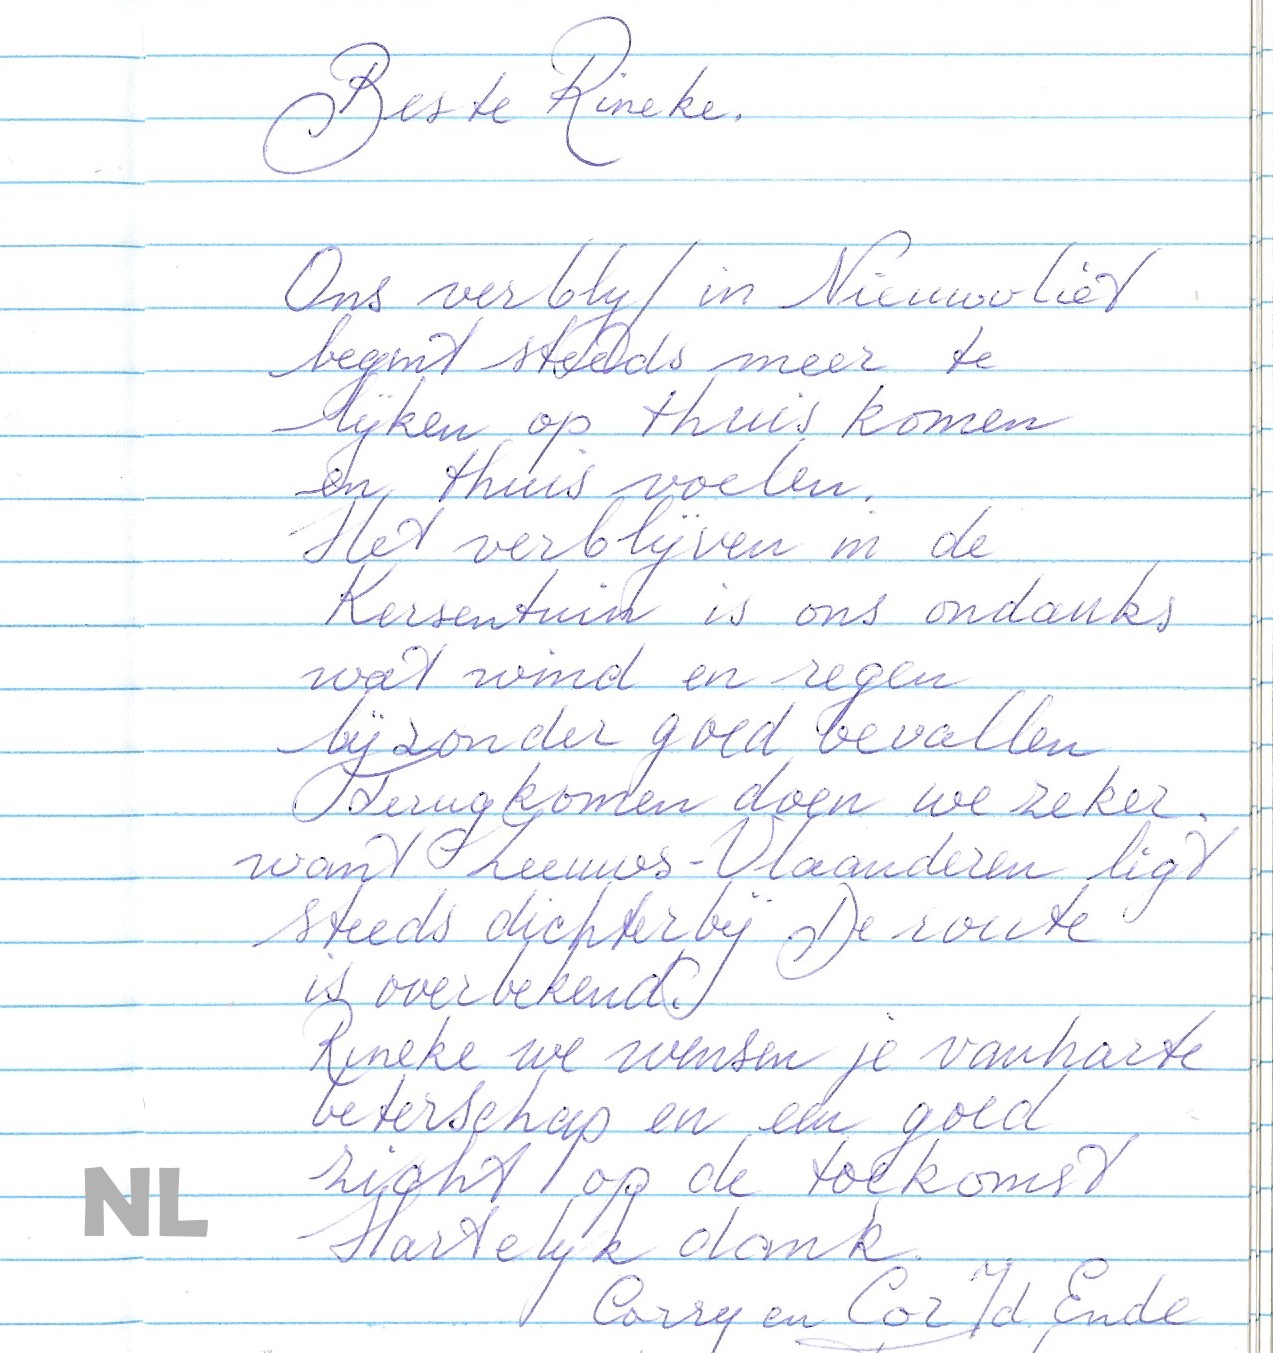 Beste Rineke.
Ons verblijf in Nieuwvliet
begint steeds meer te
lijken op thuis komen
en thuis voelen.
Het verblijven in de
Kersentuin is ons ondanks
wat wind en regen
bijzonder goed bevallen
Terugkomen doen we zeker.
want Zeeuws-Vlaanderen ligt
steeds dichterbij De route
is overbekend.
Rineke we wensen je vanharte
beterschap en een goed
zicht op de toekomst
Hartelijk dank.
Corry en Cor Ende
NL